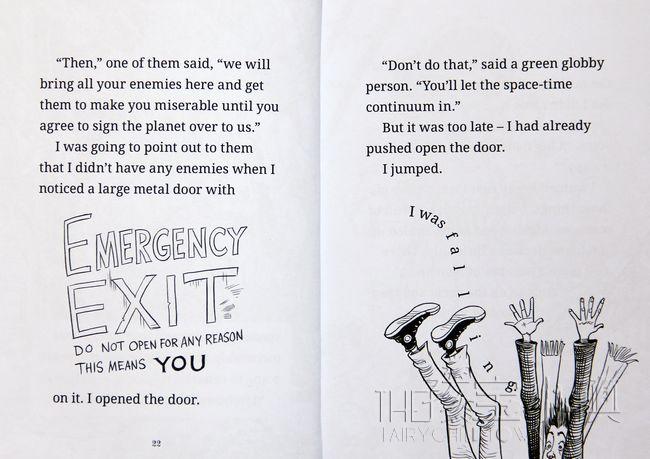 “Then,” one of them said, “we will
bring all your enemies here and get
them to make you miserable until you
agree to sign the planet over to us.”
I was going to point out to them
that I didn’t have any enemies when I
noticed a large metal door with
EMERGENCY
EXIT
DO NOT OPEN FOR ANY REASON
THIS MEANS YOU
on it. I opened the door.
22
“Don’t do that,” said a green globby
person. “You’ll let the space-time
continuum in.”
But it was too late – I had already
pushed open the door.
I jumped.
I was falling